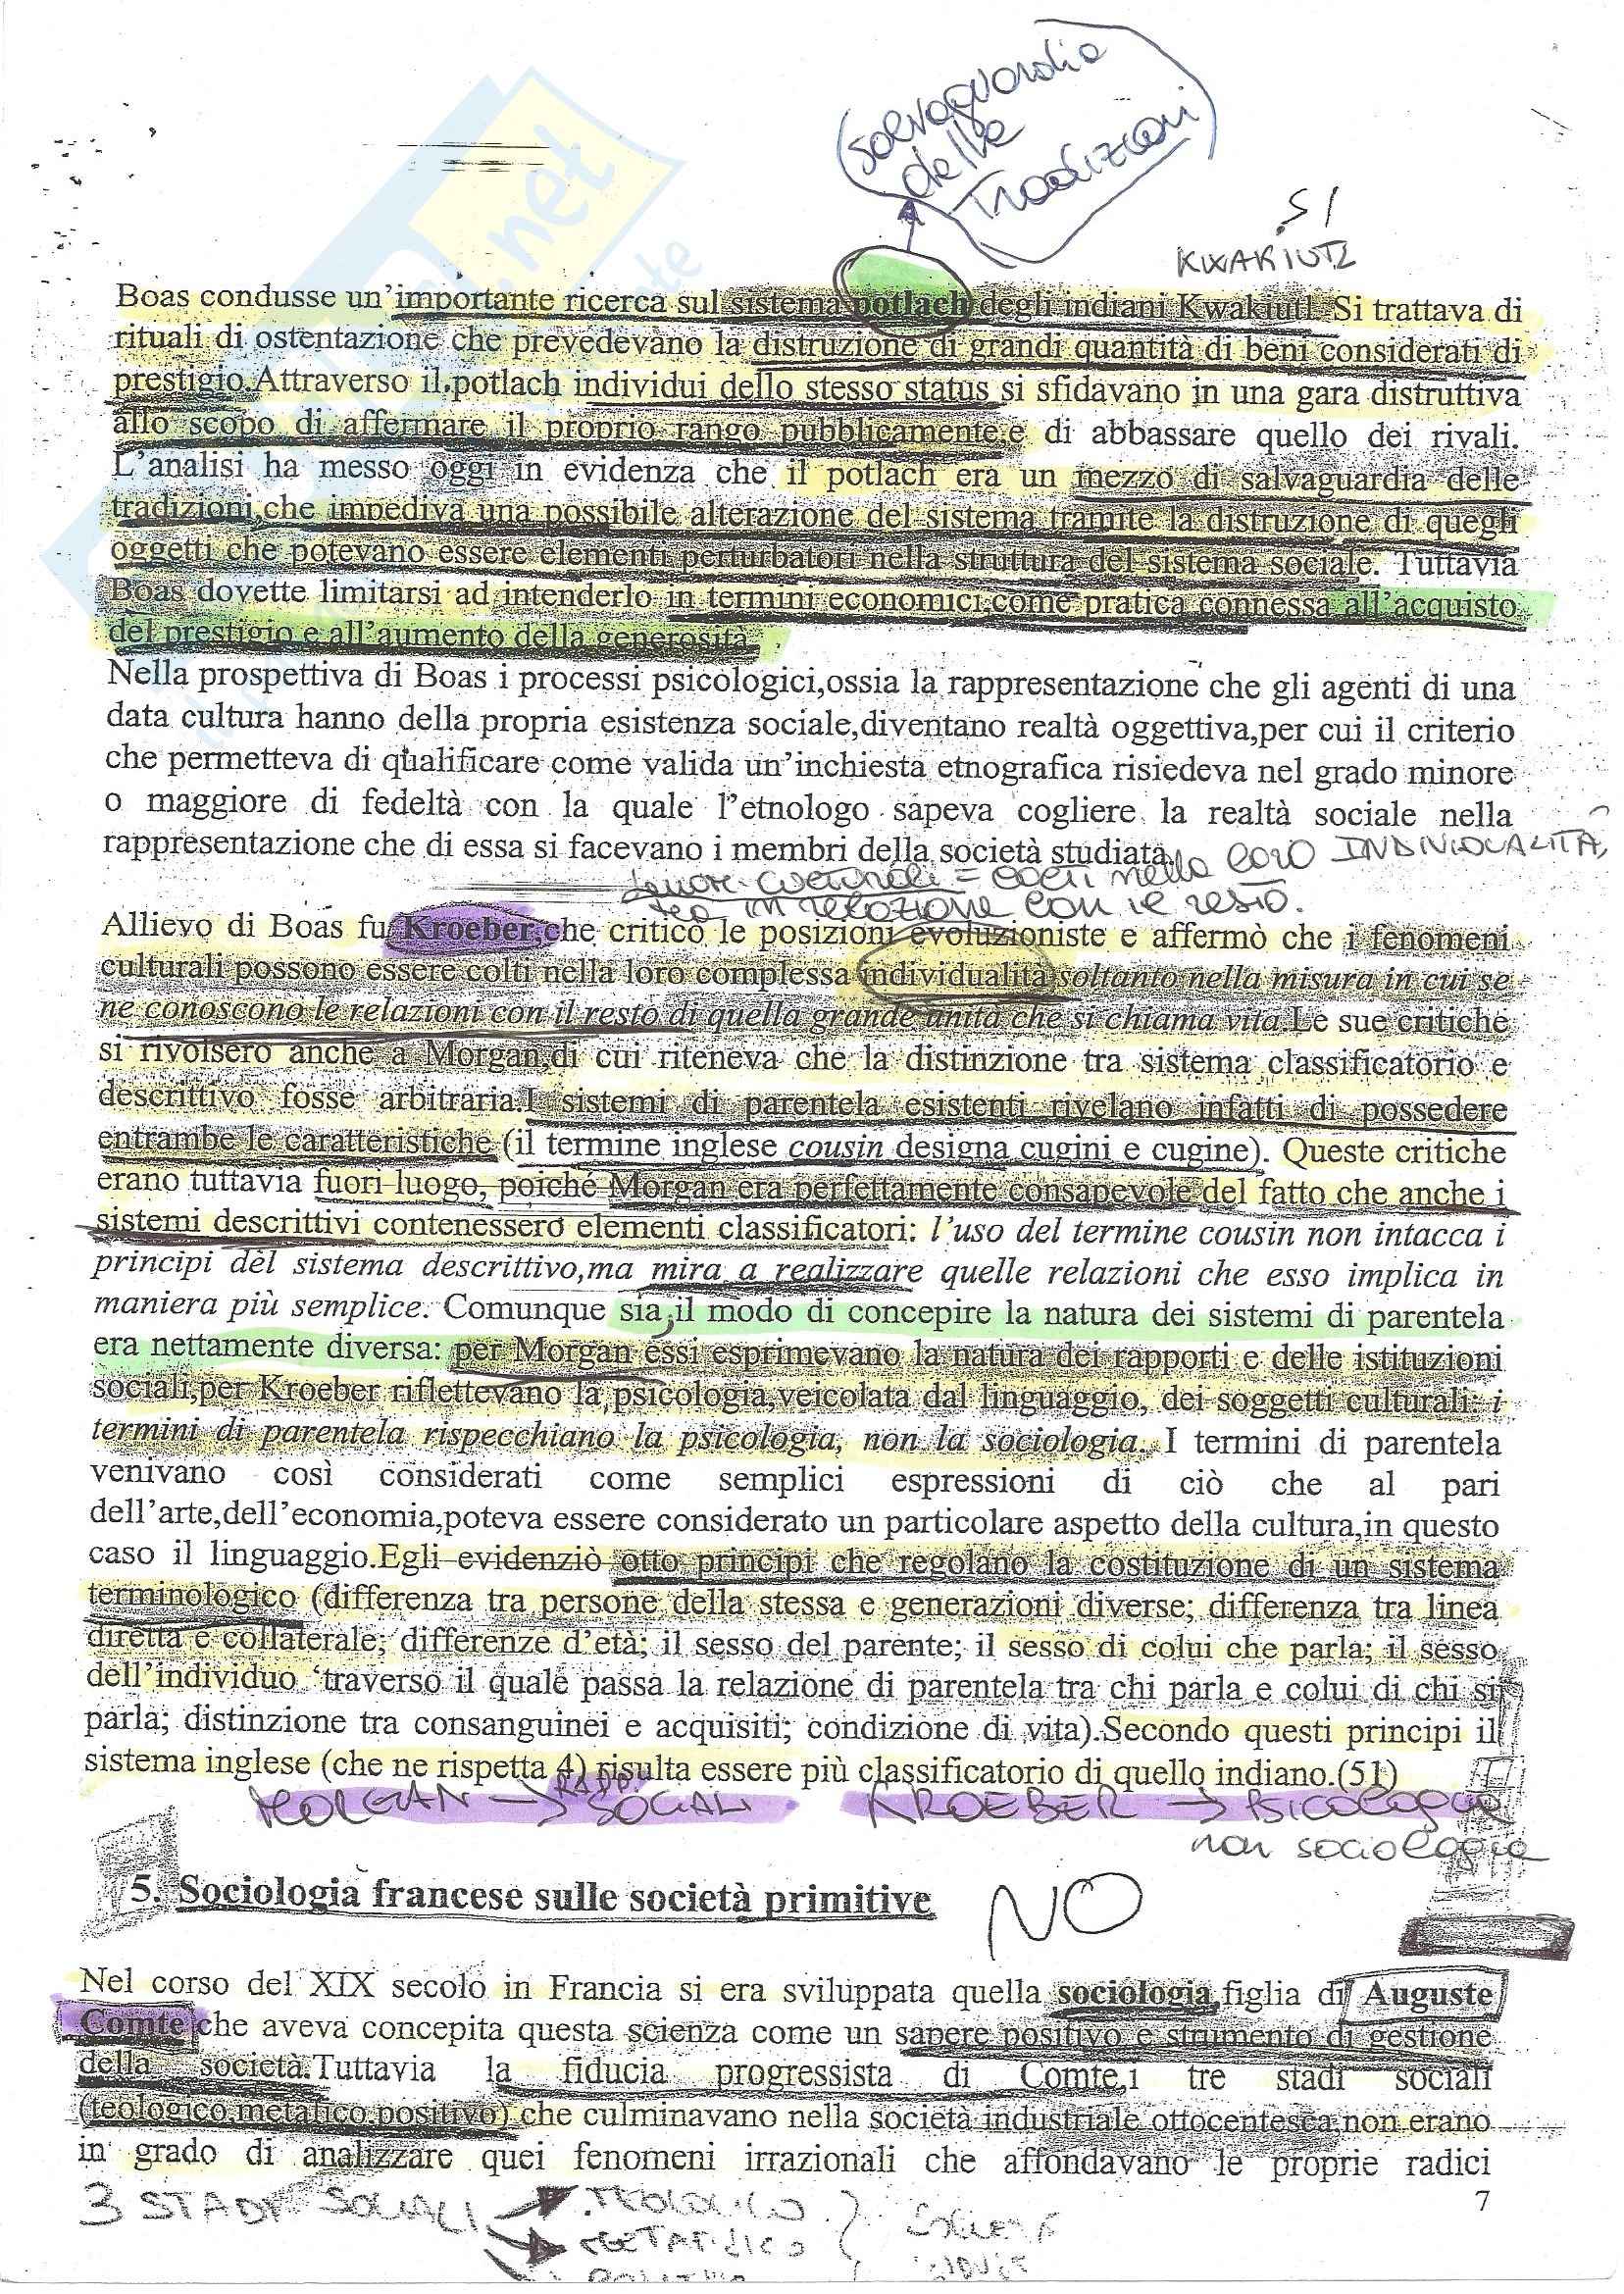 (salvaguardia
delle
Tradizioni)
SI
KWAKIUTL
.net
Boas condusse un'importante ricerca sul sistema potlach degli indiani Kwakiutl. Si trattava di
rituali di ostentazione che prevedevano la distruzione di grandi quantità di beni considerati di
prestigio.Attraverso il potlach individui dello stesso status si sfidavano in una gara distruttiva
allo scopo di affermare il proprio rango pubblicamente e di abbassare quello dei rivali.
L'analisi ha messo oggi in evidenza che il potlach era un mezzo di salvaguardia delle
tradizioni,che impediva una possibile alterazione del sistema tramite la distruzione di quegli
oggetti che potevano essere elementi perturbatori nella struttura del sistema sociale. Tuttavia
Boas dovette limitarsi ad intenderlo in termini economici,come pratica connessa all'acquisto
del prestigio e all'aumento della generosità.
Nella prospettiva di Boas i processi psicologici,ossia la rappresentazione che gli agenti di una
data cultura hanno della propria esistenza sociale,diventano realtà oggettiva,per cui il criterio
che permetteva di qualificare come valida un'inchiesta etnografica risiedeva nel grado minore
o maggiore di fedeltà con la quale l'etnologo sapeva cogliere la realtà sociale nella
rappresentazione che di essa si facevano i membri della società studiata.
culturali = colti nella loro INDIVIDUALITÀ,
in relazione con il resto.
Allievo di Boas fu Kroeber,che criticò le posizioni evoluzioniste e affermò che i fenomeni
culturali possono essere colti nella loro complessa individualità soltanto nella misura in cui se
ne conoscono le relazioni con il resto di quella grande unità che si chiama vita.Le sue critiche
si rivolsero anche a Morgan,di cui riteneva che la distinzione tra sistema classificatorio e
descrittivo fosse arbitraria.I sistemi di parentela esistenti rivelano infatti di possedere
entrambe le caratteristiche (il termine inglese cousin designa cugini e cugine). Queste critiche
erano tuttavia fuori luogo, poiché Morgan era perfettamente consapevole del fatto che anche i
sistemi descrittivi contenessero elementi classificatori: l'uso del termine cousin non intacca i
principi del sistema descrittivo,ma mira a realizzare quelle relazioni che esso implica in
maniera più semplice. Comunque sia,il modo di concepire la natura dei sistemi di parentela
era nettamente diversa: per Morgan essi esprimevano la natura dei rapporti e delle istituzioni
sociali,per Kroeber riflettevano la psicologia,veicolata dal linguaggio, dei soggetti culturali: i
termini di parentela rispecchiano la psicologia, non la sociologia. I termini di parentela
venivano così considerati come semplici espressioni di ciò che al pari
dell'arte,dell'economia,poteva essere considerato un particolare aspetto della cultura,in questo
caso il linguaggio.Egli evidenziò otto principi che regolano la costituzione di un sistema
terminologico (differenza tra persone della stessa e generazioni diverse; differenza tra linea
diretta e collaterale; differenze d'età; il sesso del parente; il sesso di colui che parla; il sesso
dell'individuo 'traverso il quale passa la relazione di parentela tra chi parla e colui di chi si
parla; distinzione tra consanguinei e acquisiti; condizione di vita).Secondo questi principi il
sistema inglese (che ne rispetta 4) risulta essere più classificatorio di quello indiano.(51)
MORGAN → RAPP. SOCIALI KROEBER → PSICOLOGIA
non sociologia
5. Sociologia francese sulle società primitive
NO
Nel corso del XIX secolo in Francia si era sviluppata quella sociologia,figlia di Auguste
Comte che aveva concepita questa scienza come un sapere positivo e strumento di gestione
della società.Tuttavia la fiducia progressista di Comte,i tre stadi sociali
(teologico,metafico,positivo) che culminavano nella società industriale ottocentesca,non erano
in grado di analizzare quei fenomeni irrazionali che affondavano le proprie radici
7
3 STADI SOCIALI → TEOLOGICO
→ METAFISICO
→ POSITIVO